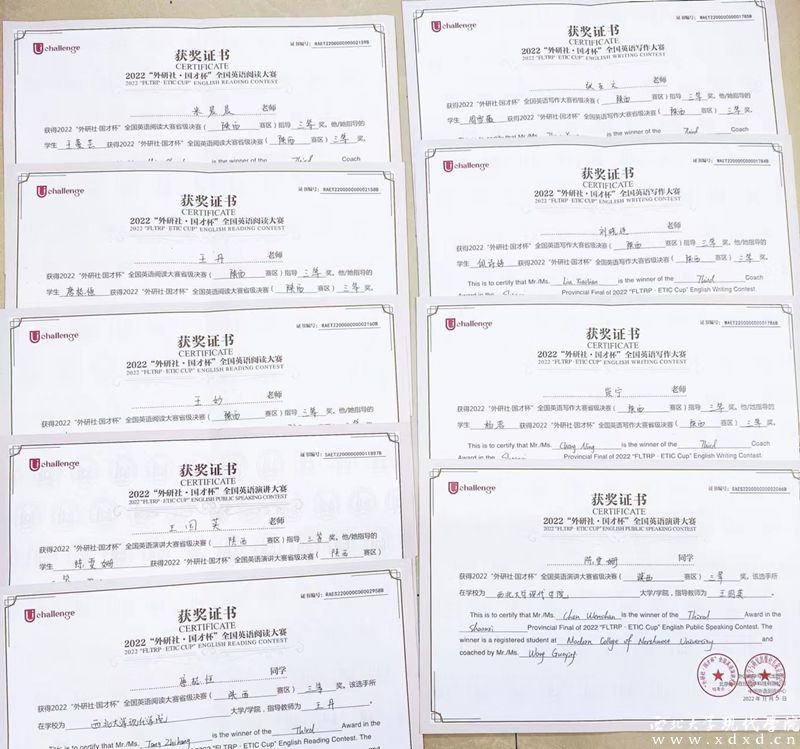 U challenge
证书编号：RAET2200000000002159B
获奖证书
CERTIFICATE
2022 “外研社·国才杯”全国英语阅读大赛
2022 "FLTRP · ETIC CUP" ENGLISH READING CONTEST
老师
获得2022 “外研社·国才杯” 全国英语阅读大赛省级决赛（ 陕西 赛区）指导 三等 奖。他/她指导的
学生 获得2022 “外研社·国才杯” 全国英语阅读大赛省级决赛（ 陕西 赛区）三等 奖。
is the winner of the Third Coach
U challenge
证书编号：RAET2200000000002158B
获奖证书
CERTIFICATE
2022 “外研社·国才杯”全国英语阅读大赛
2022 "FLTRP · ETIC CUP" ENGLISH READING CONTEST
王丹 老师
获得2022 “外研社·国才杯” 全国英语阅读大赛省级决赛（ 陕西 赛区）指导 三等 奖。他/她指导的
学生 获得2022 “外研社·国才杯” 全国英语阅读大赛省级决赛（ 陕西 赛区）三等 奖。
U challenge
证书编号：RAET2200000000002160B
获奖证书
CERTIFICATE
2022 “外研社·国才杯”全国英语阅读大赛
2022 "FLTRP · ETIC CUP" ENGLISH READING CONTEST
王妙 老师
获得2022 “外研社·国才杯” 全国英语阅读大赛省级决赛（ 陕西 赛区）指导 三等 奖。他/她指导的
U challenge
获奖证书
CERTIFICATE
2022 “外研社·国才杯”全国英语演讲大赛
2022 "FLTRP · ETIC CUP" ENGLISH PUBLIC SPEAKING CONTEST
王国英 老师
获得2022 “外研社·国才杯” 全国英语演讲大赛省级决赛（ 陕西 赛区）指导 三等 奖。他/她指导的
学生 陈雯姗 获得2022 “外研社·国才杯” 全国英语演讲大赛省级决赛（ 陕西 赛区）
U challenge
证书编号：RAES2200000000002958B
获奖证书
CERTIFICATE
2022 “外研社·国才杯”全国英语阅读大赛
2022 "FLTRP · ETIC CUP" ENGLISH READING CONTEST
同学
获得2022 “外研社·国才杯” 全国英语阅读大赛省级决赛（ 陕西 赛区） 三等 奖，该选手所
在学校为 西北大学现代学院 大学/学院，指导教师为 王丹
This is to certify that Mr./Ms. is the winner of the Third Award in the
U challenge
证书编号：WAET2200000000001785B
获奖证书
CERTIFICATE
2022 “外研社·国才杯”全国英语写作大赛
2022 "FLTRP · ETIC CUP" ENGLISH WRITING CONTEST
老师
获得2022 “外研社·国才杯” 全国英语写作大赛省级决赛（ 陕西 赛区）指导 三等 奖。他/她指导的
学生 获得2022 “外研社·国才杯” 全国英语写作大赛省级决赛（ 陕西 赛区）三等 奖。
is the winner of the Third Coach
U challenge
证书编号：WAET2200000000001784B
获奖证书
CERTIFICATE
2022 “外研社·国才杯”全国英语写作大赛
2022 "FLTRP · ETIC CUP" ENGLISH WRITING CONTEST
老师
获得2022 “外研社·国才杯” 全国英语写作大赛省级决赛（ 陕西 赛区）指导 三等 奖。他/她指导的
学生 获得2022 “外研社·国才杯” 全国英语写作大赛省级决赛（ 陕西 赛区）三等 奖。
This is to certify that Mr./Ms. is the winner of the Third Coach
Provincial Final of 2022 "FLTRP · ETIC Cup" English Writing Contest.
U challenge
证书编号：WAET2200000000001786B
获奖证书
CERTIFICATE
2022 “外研社·国才杯”全国英语写作大赛
2022 "FLTRP · ETIC CUP" ENGLISH WRITING CONTEST
老师
获得2022 “外研社·国才杯” 全国英语写作大赛省级决赛（ 陕西 赛区）指导 三等 奖。他/她指导的
学生 杨蓉 获得2022 “外研社·国才杯” 全国英语写作大赛省级决赛（ 陕西 赛区）三等 奖。
This is to certify that Mr./Ms. Chang Ning is the winner of the Third Coach
Award in the Shaanxi Provincial Final of 2022 "FLTRP · ETIC Cup" English Writing Contest.
U challenge
证书编号：EAES2200000000002066B
获奖证书
CERTIFICATE
2022 “外研社·国才杯”全国英语演讲大赛
2022 "FLTRP · ETIC CUP" ENGLISH PUBLIC SPEAKING CONTEST
陈雯姗 同学
获得2022 “外研社·国才杯” 全国英语演讲大赛省级决赛（ 陕西 赛区） 三等 奖，该选手所
在学校为 西北大学现代学院 大学/学院，指导教师为 王国英
This is to certify that Mr./Ms. Chen Wenshan is the winner of the Third Award in the
Shaanxi Provincial Final of 2022 "FLTRP · ETIC Cup" English Public Speaking Contest. The
winner is a registered student at Modern College of Northwest University and
coached by Mr./Ms. Wang Guoying
西北大学现代学院
www.xdxd.cn